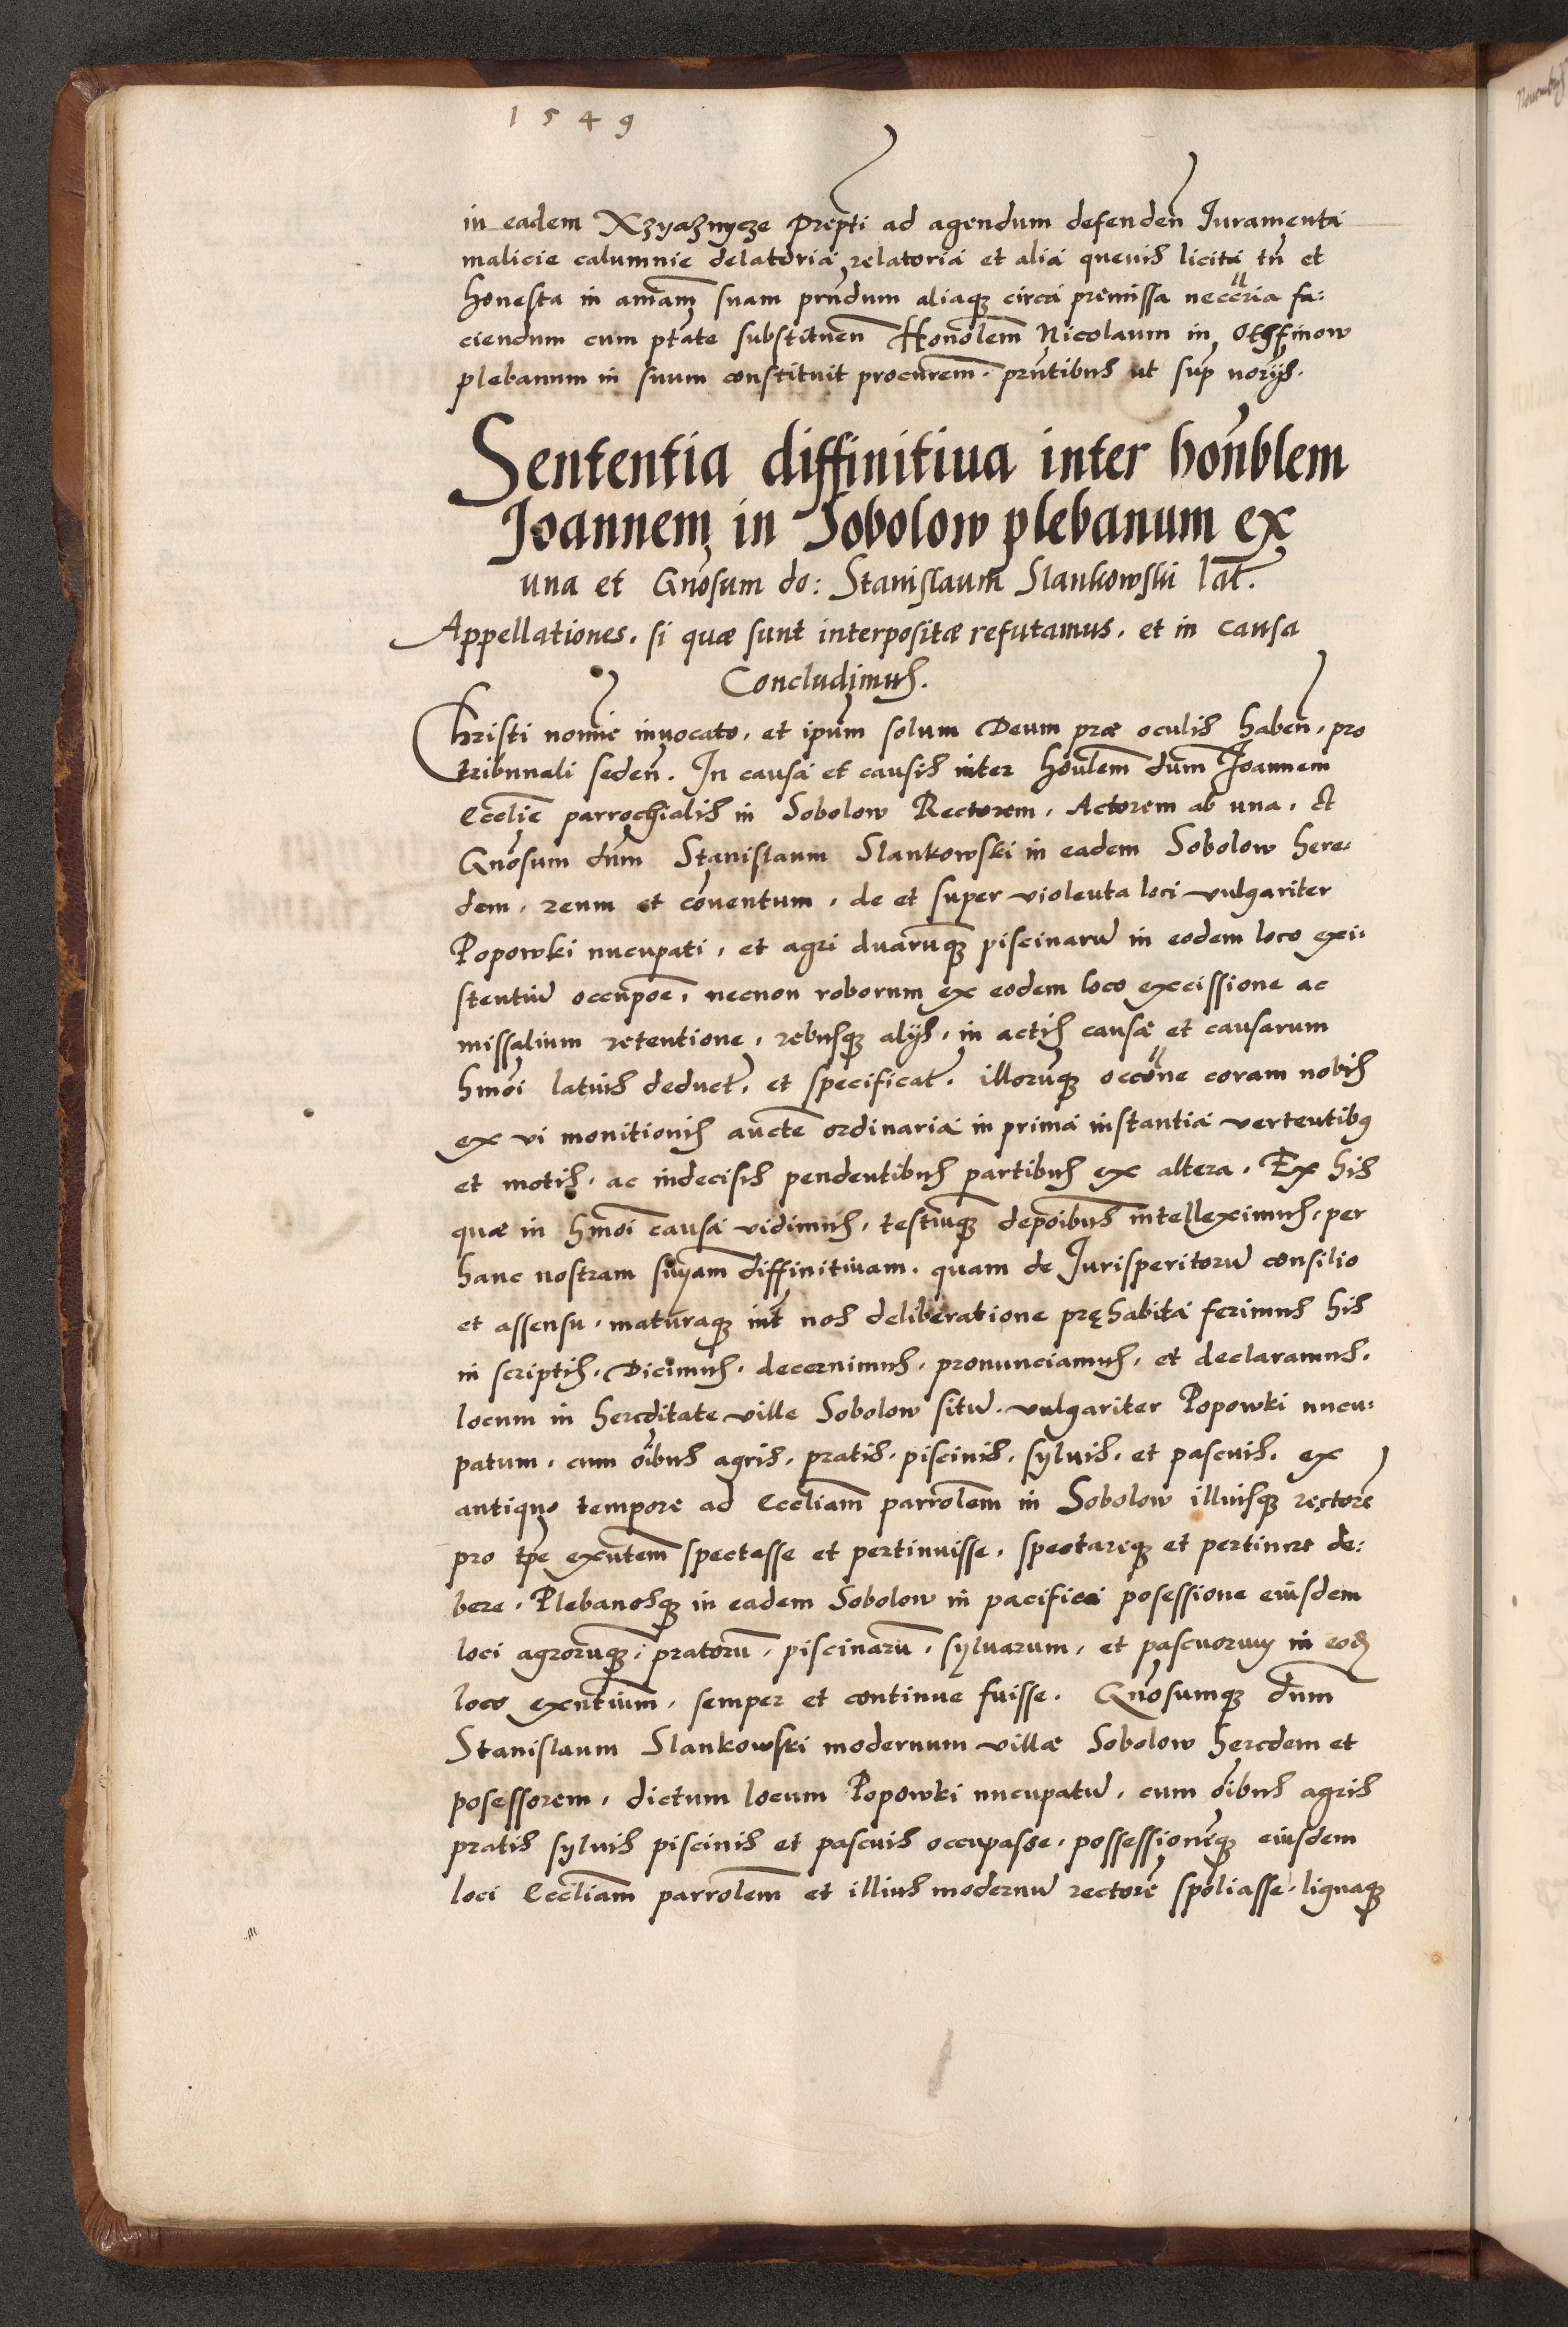 1549
in eadem Xzyaznycze prepti ad agendum defenden Iuramenta
malicie calumnie delatoria relatoria et alia quevis licita tn et
honesta in amam suam prndum aliaq circa premissa necceria fa:
ciendum cum ptate substituen Honolem Nicolaum in Othfinow
plebanum in suum constituit procurem. prntibus ut sup norijs.
Sententia diffinitiua inter honblem
Joannem in Sobolow plebanum ex
una et Gnosum do: Stanislaum Slankowski lat.
Appellationes. si quæ sunt interpositæ refutamus. et in causa
Concludimus.
Christi nomie inuocato, et ipum solum Deum præ oculis haben, pro
tribunali seden. In causa et causis inter houlem dum Joannem
Ecclie parrochialis in Sobolow Rectorem, Actorem ab una, Et
Gnosum dum Stanislaum Slankowski in eadem Sobolow here:
dem, reum et couentum, de et super violenta loci vulgariter
Popowki nucupati, et agri duaruq piscinaru in eodem loco exi:
stentiu occupoe, necnon roborum ex eodem loco excissione ac
missalium retentione, rebusq alijs, in actis causæ et causarum
hmoi latius deduct, et specificat. illoruq occone coram nobis
ex vi monitionis aucte ordinaria in prima instantia vertentibus
et motis, ac indecisis pendentibus partibus ex altera. Ex his
quæ in hmoi causa vidimus, testiuq depoibus intelleximus, per
hanc nostram snyam diffinitiuam, quam de Iurisperitoru consilio
et assensu, maturaq int nos deliberatione pręhabita ferimus his
in scriptis, Dicimus, decernimus, pronunciamus, et declaramus,
locum in hereditate ville Sobolow situ, vulgariter Popowki nucu:
patum, cum oibus agris, pratis, piscinis, syluis, et pascuis, ex
antiquo tempore ad Eccliam parrolem in Sobolow illiusq rectore
pro tpe exntem spectasse et pertinuisse, spectareq et pertinere de:
bere, Plebanosq in eadem Sobolow in pacifica posessione eiusdem
loci agroruq, pratoru, piscinaru, syluarum, et pascuorum in eod
loco exntium, semper et continue fuisse. Gnosumq dum
Stanislaum Slankowski modernum villæ Sobolow heredem et
posessorem, dictum locum Popowki nucupatu, cum oibus agris
pratis syluis piscinis et pascuis occupasse, possessioneq eiusdem
loci Eccliam parrolem et illius modernu rectore spoliasse, lignaq